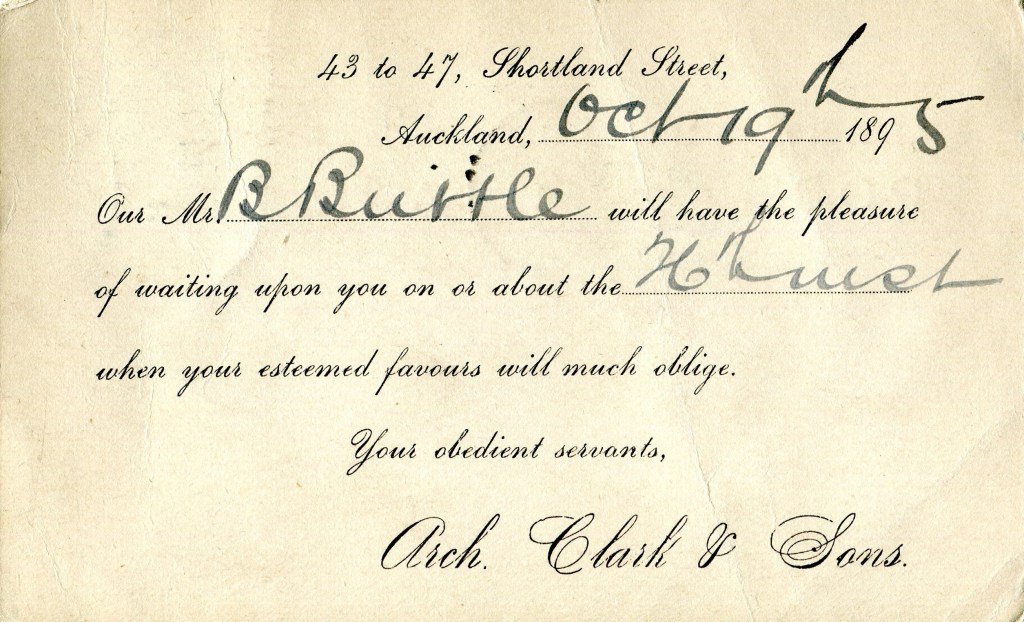 43 to 47, Shortland Street,
Auckland, Oct 19th 1895
Our Mr. B Buttle will have the pleasure
of waiting upon you on or about the 26th inst
when your esteemed favours will much oblige.
Your obedient servants,
Arch. Clark & Sons.